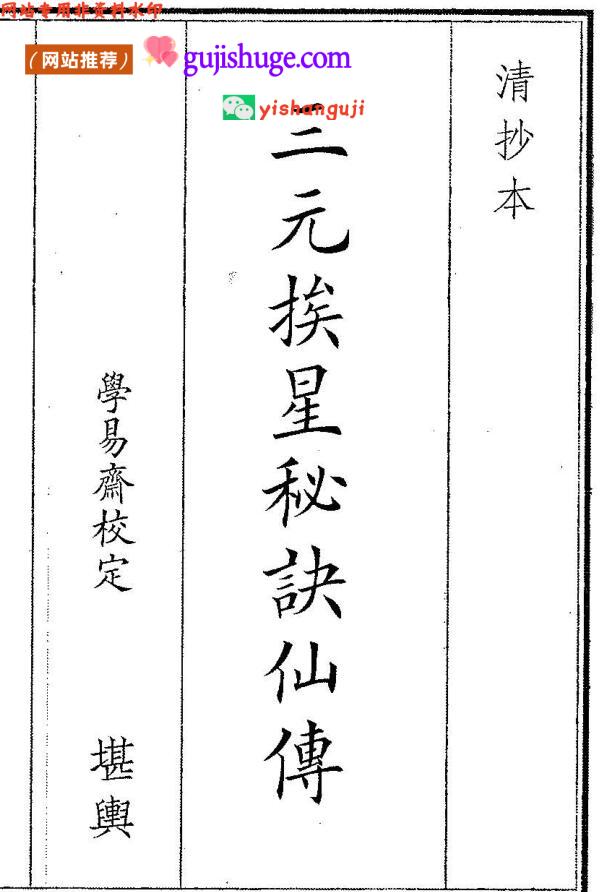 网站专用非资料水印
（网站推荐） gujishuge.com
yishanguji
清抄本
三元挨星秘訣仙傳
學易齋校定
堪輿